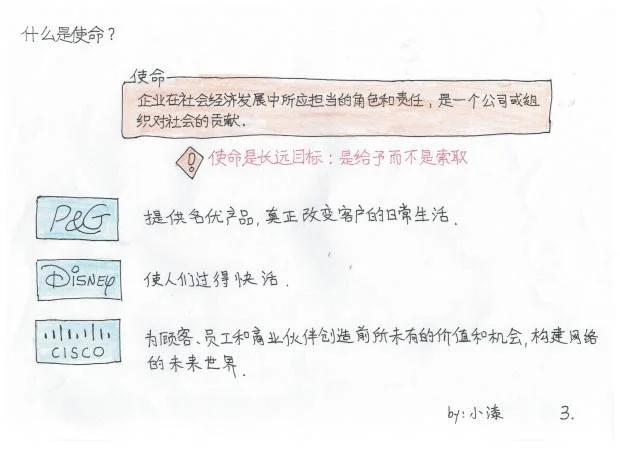 什么是使命？
使命
企业在社会经济发展中所应担当的角色和责任，是一个公司或组
织对社会的贡献.
! 使命是长远目标：是给予而不是索取
P&G
提供名优产品,真正改变客户的日常生活.
DISNEY
使人们过得快活.
CISCO
为顾客、员工和商业伙伴创造前所未有的价值和机会,构建网络
的未来世界.
by:小漆 3.